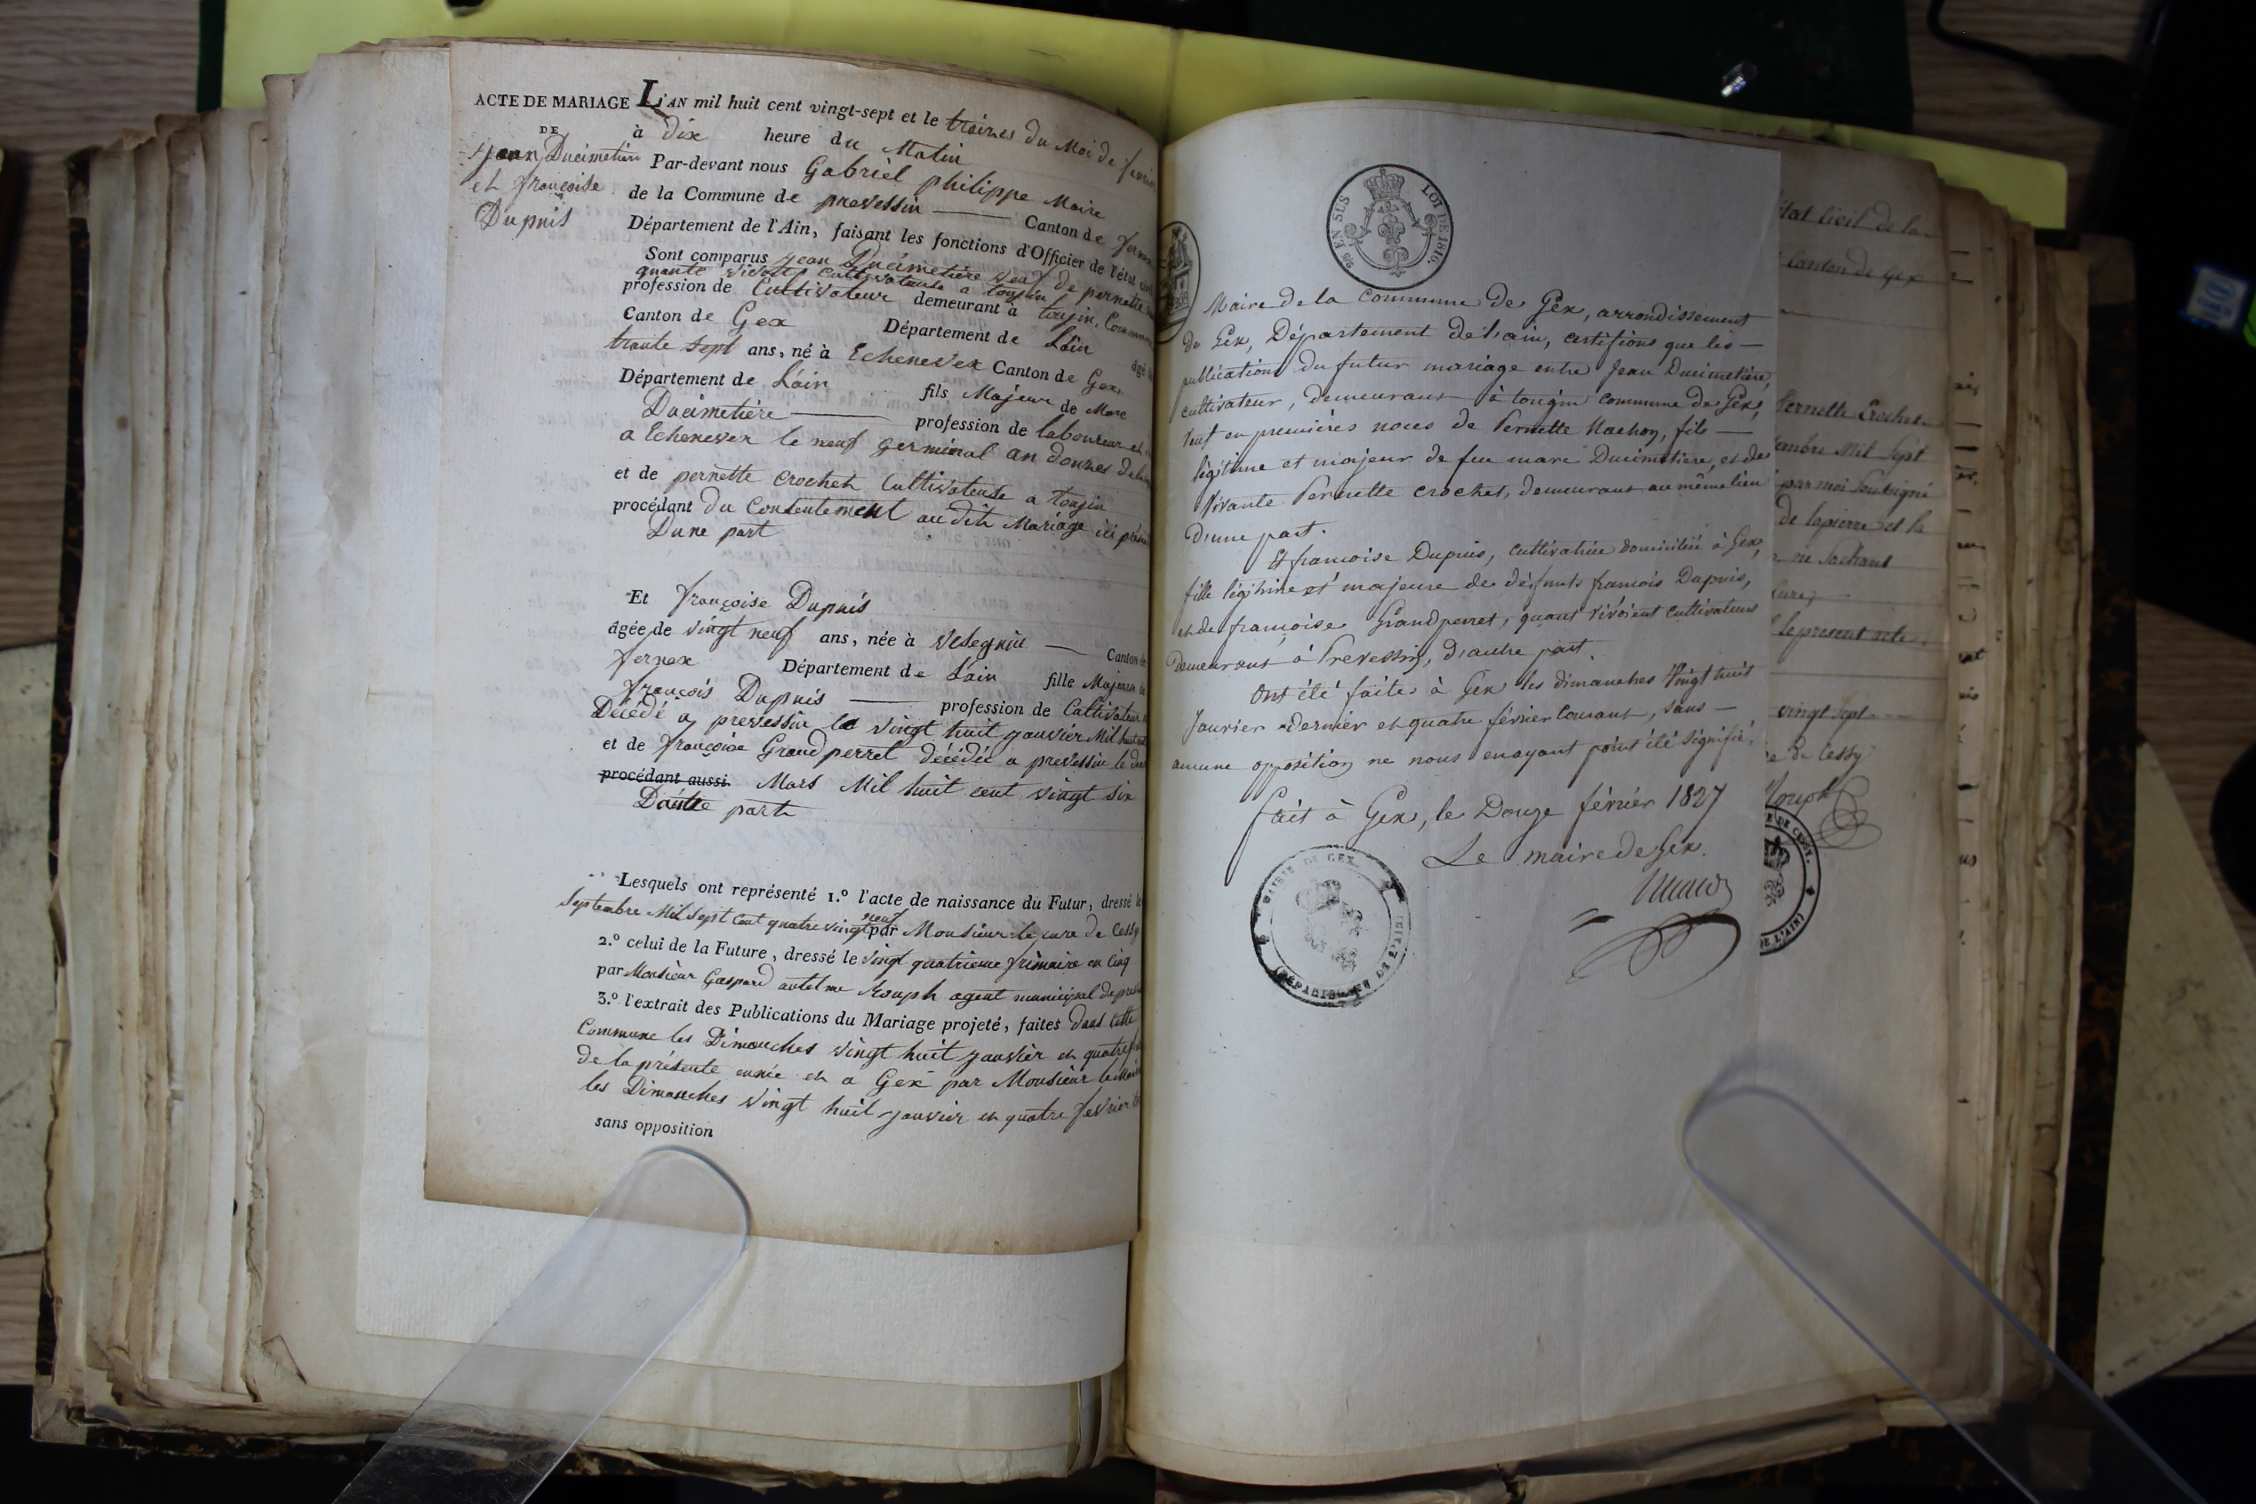 ACTE DE MARIAGE L'AN mil huit cent vingt-sept et le treizes du Moi de fevrier
DE
à dix heure du Matin
Jean Ducimetiere
Par-devant nous Gabriel philippe Maire
et françoise
de la Commune de prevessin Canton de fernex
Dupuis
Département de l'Ain, faisant les fonctions d'Officier de l'état civil
Sont comparus Jean Ducimetière veuf de pernette
quante vivoit cultivateuse a toujin
profession de Cultivateur demeurant à toujin, Commune
Canton de Gex Département de Láin âgé de
trante sept ans, né à Echenevex Canton de Gex
Département de Láin fils Majeur de Marc
Ducimetière profession de laboureur
a Echenevex le neuf germinal an douzes de la
et de pernette Crochet Cultivateuse a toujin
procédant du Consentement au dit Mariage ici
Dune part
Et françoise Dupuis
âgée de vingt neuf ans, née à Vesegnin Canton de
fernex Département de Láin fille Majeure de
françois Dupuis profession de Cultivateur
Décédé a prevessin le vingt huit janvier Mil huit
et de françoise Grandperret décédée a prevessin le
procédant aussi Mars Mil huit cent vingt six
Dautre part
Lesquels ont représenté 1.º l'acte de naissance du Futur, dressé le
Septembre Mil sept cent quatre vingt neuf par Monsieur le cure de Cessy
2.º celui de la Future, dressé le vingt quatrieme frimaire an Cinq
par Monsieur Gaspard antelme Rouph agent municipal de
3.º l'extrait des Publications du Mariage projeté, faites dans cette
Commune les Dimanches vingt huit janvier et quatre
de la présente année et a Gex par Monsieur le Maire
les Dimanches vingt huit janvier et quatre fevrier
sans opposition
95 EN SUS
LOI DE 1816.
Maire de la Commune de Gex, arrondissement
de Gex, Département de l'ain, certifions que les
publications du futur mariage entre Jean Ducimetière,
cultivateur, demeurant à tougin commune de Gex,
veuf en premières noces de Pernette Machon, fils
légitime et majeur de feu marc Ducimetiere, et de
vivante Pernette crochet, demeurant au même lieu
d'une part.
Et francoise Dupuis, cultivatrice domiciliée à Gex,
fille légitime et majeure de défunts francois Dupuis,
et de francoise Grandperret, quant vivoient cultivateurs
demeurant à Prevessin, d'autre part.
Ont été faites à Gex les dimanches Vingt huit
Janvier dernier et quatre février courant, sans
aucune opposition ne nous en ayant point été signifié.
fait à Gex, le Douze février 1827
Le maire de Gex.
MAIRIE DE GEX
état Civil de la
Canton de Gex
Pernette Crochet
Mil Sept
par moi Soussigné
de lapierre et la
ne Sachant
le present acte
vingt sept
de Cessy
Rouph
DE CESSY.
DE L'AIN)